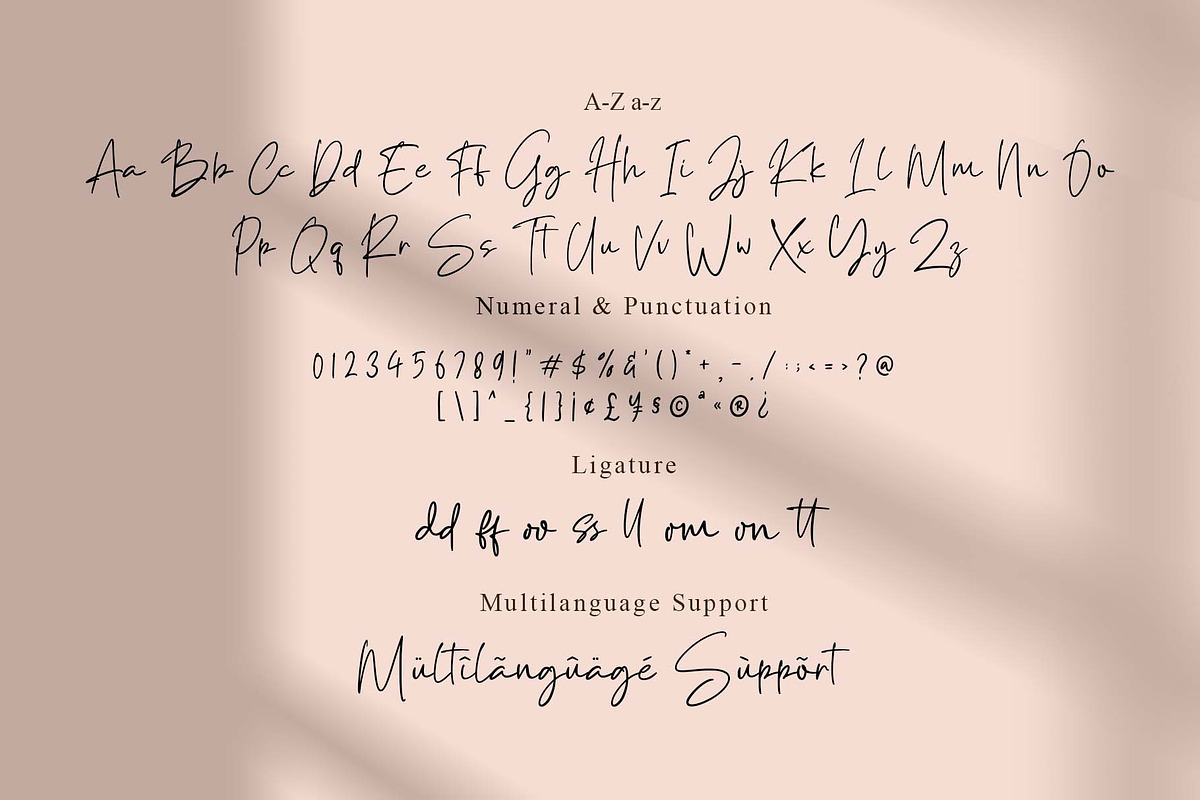 A-Z a-z
Aa Bb Cc Dd Ee Ff Gg Hh Ii Jj Kk Ll Mm Nn Oo
Pp Qq Rr Ss Tt Uu Vv Ww Xx Yy Zz
Numeral & Punctuation
0123456789!"#$%&'()*+,-./:;<=>?@
[\]^_{|}¡¢£¥§©ª«®¿
Ligature
dd ff oo ss ll om on tt
Multilanguage Support
Mültîlãngûägé Sùppõrt